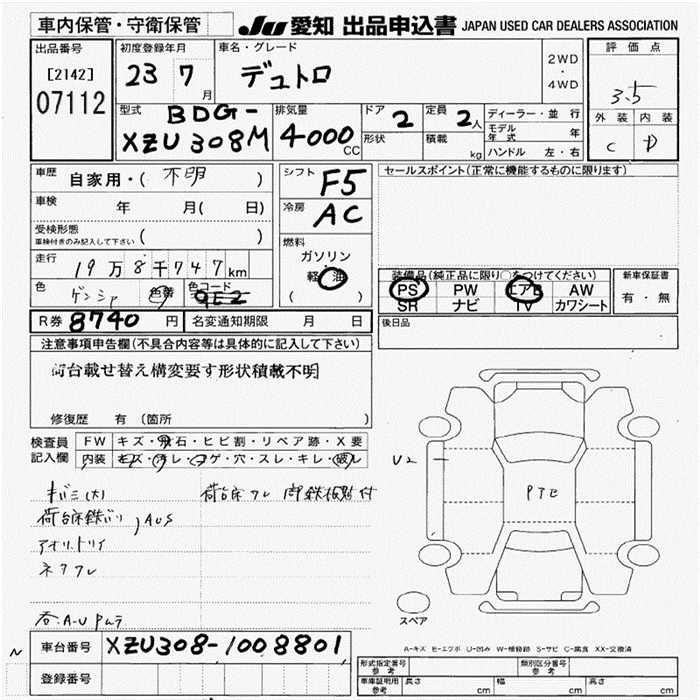 車内保管・守衛保管
JU 愛知 出品申込書 JAPAN USED CAR DEALERS ASSOCIATION
出品番号
[2142]
07112
初度登録年月
23 7 月
車名・グレード
デュトロ
2WD
・
4WD
評価点
3.5
外装 内装
C D
型式
BDG-
XZU308M
排気量
4000 CC
ドア 2
形状
定員 2人
積載 kg
ディーラー・並行
モデル年式 年
ハンドル 左・右
車歴 自家用・( 不明 )
車検 年 月( 日)
受検形態
車検付きのみ記入して下さい ( )
走行 19万8千747km
色 色替
色コード 9E2
シフト F5
冷房 AC
燃料
ガソリン
軽・油
( )
セールスポイント(正常に機能するものに限ります)
装備品(純正品に限り○をつけてください)
PS PW エアB AW
SR ナビ TV カワシート
新車保証書
有・無
R券 8740 円
名変通知期限 月 日
後日品
注意事項申告欄(不具合内容等は具体的に記入して下さい)
荷台載せ替え構変要す形状積載不明
修復歴 有 (箇所 )
検査員
記入欄
FW キズ・飛石・ヒビ割・リペア跡・X要
内装 キズ・ヨゴレ・コゲ・穴・スレ・キレ・破レ
U2
スペア
A-キズ E-エクボ U-凹み W-補修跡 S-サビ C-腐食 XX-交換済
N
車台番号 XZU308-1008801
登録番号
形式指定番号
参考
類別区分番号
参考
車庫証明用
参考
長さ cm 幅 cm 高さ cm